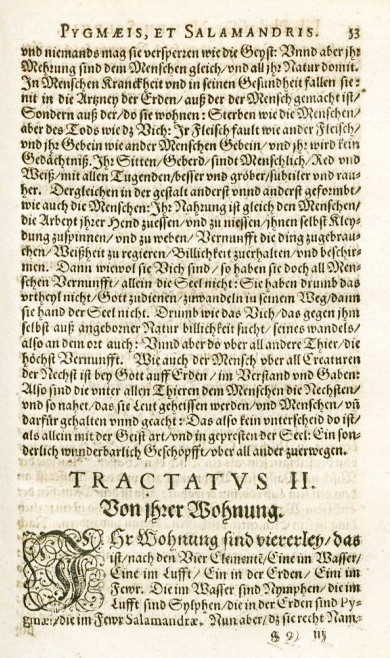 PYGMÆIS, ET SALAMANDRIS. 53
vnd niemands mag sie versperren wie die Geyst: Vnnd aber jhr
Mehrung sind dem Menschen gleich/ vnd all jhr Natur domit.
In Menschen Kranckheit vnd in seinen Gesundheit fallen sie:
nit in die Artzney der Erden/ auß der der Mensch gemacht ist/
Sondern auß der/ do sie wohnen: Sterben wie die Menschen/
aber des Tods wie dz Vich: Ir Fleisch fault wie ander Fleisch/
vnd jhr Gebein wie ander Menschen Gebein/ vnd jhr wird kein
Gedächtniß. Ihr Sitten/ Geberd/ sindt Menschlich/ Red vnd
Weiß/ mit allen Tugenden/ besser vnd gröber/ subtiler vnd rau-
her. Dergleichen in der gestalt anderst vnnd anderst geformbt/
wie auch die Menschen: Ihr Nahrung ist gleich den Menschen/
die Arbeyt jhrer Hend zuessen/ vnd zu niessen/ jhnen selbst Kley-
dung zuspinnen/ vnd zu weben/ Vernunfft die ding zugebrau-
chen/ Weißheit zu regieren/ Billichkeit zuerhalten/ vnd beschir-
men. Dann wiewol sie Vich sind/ so haben sie doch all Men-
schen Vernunfft/ allein die Seel nicht: Sie haben drumb das
vrtheyl nicht/ Gott zudienen/ zuwandeln in seinem Weg/ dann
sie hand der Seel nicht. Drumb wie das Vich/ das gegen jhm
selbst auß angeborner Natur billichkeit sucht/ seines wandels/
also an dem ort auch: Vnnd aber do vber all andere Thier/ die
höchst Vernunfft. Wie auch der Mensch vber all Creaturen
der Nechst ist bey Gott auff Erden/ im Verstand vnd Gaben:
Also sind die vnter allen Thieren dem Menschen die Nechsten/
vnd so nahet/ das sie Leut geheissen werden/ vnd Menschen/ vñ
darfür gehalten vnnd geacht: Das also kein vnterscheid do ist/
als allein mit der Geist art/ vnd in gepresten der Seel: Ein son-
derlich wunderbarlich Geschöpfft/ vber all ander zuerwegen.
TRACTATVS II.
Von jhrer Wohnung.
IHr Wohnung sind viererley/ das
ist/ nach den Vier Elementē/ Eine im Wasser/
Eine im Lufft/ Ein in der Erden/ Eini im
Fewr. Die im Wasser sind Nymphen/ die im
Lufft sind Sylphen/ die in der Erden sind Py-
gmæi/ die im Fewr Salamandræ. Nun aber/ dz sie recht Nam-
iij